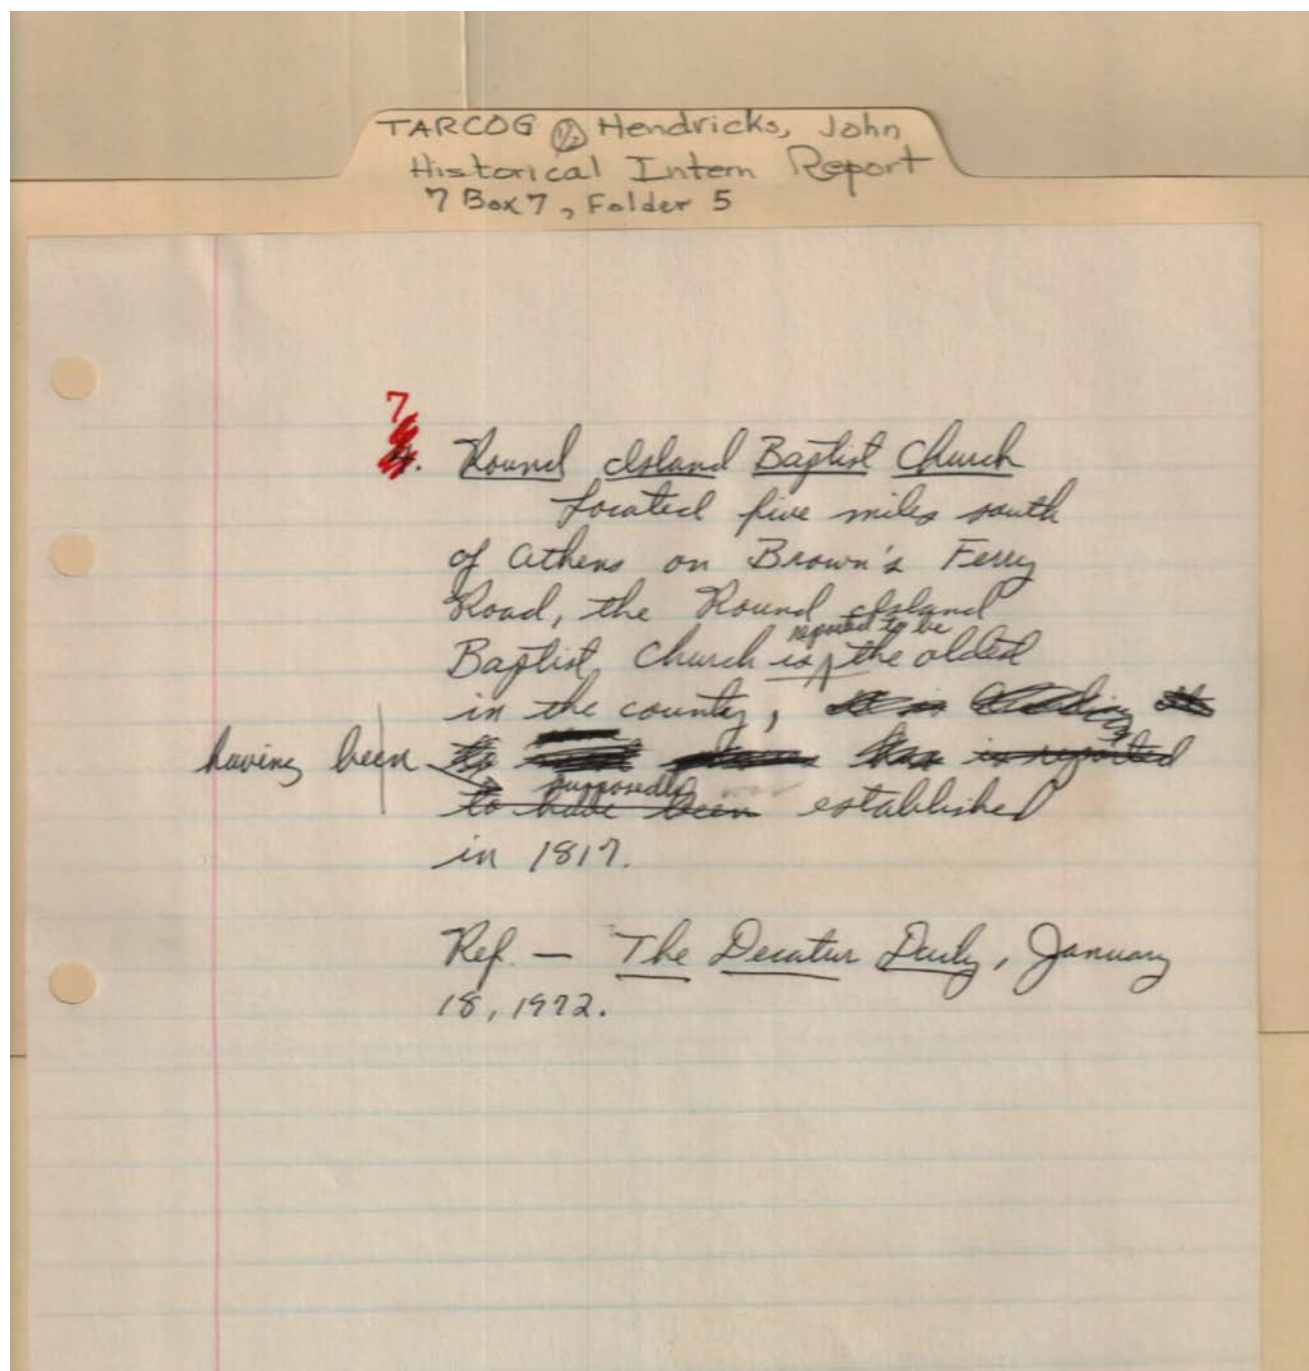 TARCOG 1/2 Hendricks, John
Historical Intern Report
7 Box 7, Folder 5
7
4. Round Island Baptist Church
Located five miles south
of Athens on Brown's Ferry
Road, the Round Island
reputed to be
Baptist Church is the oldest
in the county, it is
having been to is reported
supposedly
to have been established
in 1817.
Ref. — The Decatur Daily, January
18, 1972.